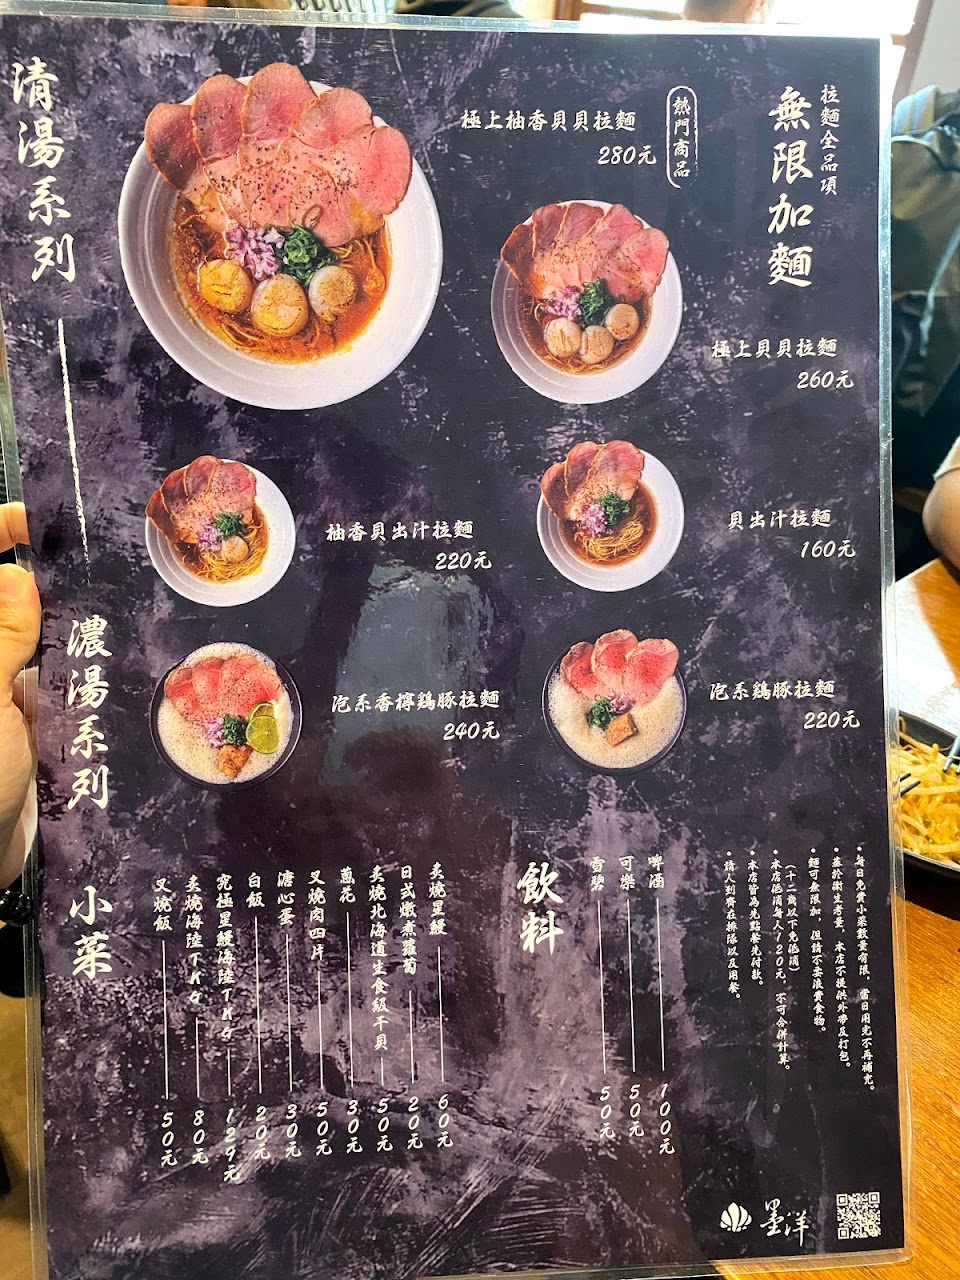 拉麵全品項
無限加麵
清湯系列
熱門商品
極上柚香貝貝拉麵
280元
極上貝貝拉麵
260元
柚香貝出汁拉麵
220元
貝出汁拉麵
160元
濃湯系列
泡系香檸鶏豚拉麵
240元
泡系鶏豚拉麵
220元
•每日免費小菜數量有限、當日用完不再補充。
•基於衛生考量，本店不提供外帶及打包。
•麵可無限加，但請不要浪費食物。
(十二歲以下免低消)
•本店低消每人120元，不可合併計算。
•本店皆為先點餐先付款。
•請人到齊在排隊以及用餐。
飲料
啤酒 100元
可樂 50元
雪碧 50元
小菜
炙燒星鰻 60元
日式燉煮蘿蔔 20元
炙燒北海道生食級干貝 50元
蔥花 30元
叉燒肉四片 50元
溏心蛋 30元
白飯 20元
究極星鰻海陸TKG 129元
炙燒海陸TKG 80元
叉燒飯 50元
墨洋